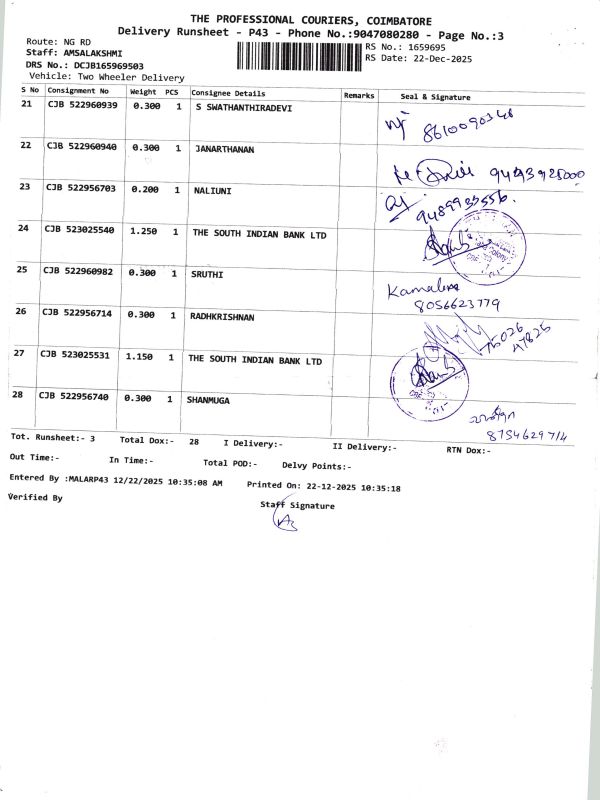 THE PROFESSIONAL COURIERS, COIMBATORE
Delivery Runsheet - P43 - Phone No.:9047080280 - Page No.:3
Route: NG RD
RS No.: 1659695
Staff: AMSALAKSHMI
RS Date: 22-Dec-2025
DRS No.: DCJB165969503
Vehicle: Two Wheeler Delivery
S No Consignment No Weight PCS Consignee Details Remarks Seal & Signature
21 CJB 522960939 0.300 1 S SWATHANTHIRADEVI
8610090348
22 CJB 522960940 0.300 1 JANARTHANAN
23 CJB 522956703 0.200 1 NALIUNI
24 CJB 523025540 1.250 1 THE SOUTH INDIAN BANK LTD
25 CJB 522960982 0.300 1 SRUTHI
8056623779
26 CJB 522956714 0.300 1 RADHKRISHNAN
75026
47825
27 CJB 523025531 1.150 1 THE SOUTH INDIAN BANK LTD
28 CJB 522956740 0.300 1 SHANMUGA
8754629714
Tot. Runsheet:- 3 Total Dox:- 28 I Delivery:- II Delivery:- RTN Dox:-
Out Time:- In Time:- Total POD:- Delvy Points:-
Entered By :MALARP43 12/22/2025 10:35:08 AM Printed On: 22-12-2025 10:35:18
Verified By
Staff Signature